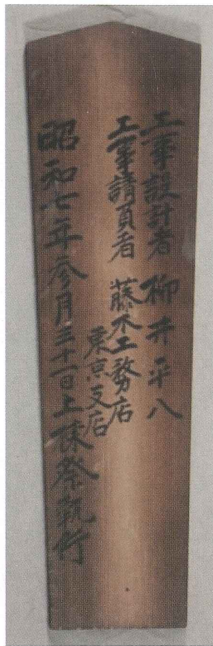 工事設計者 柳井平八
工事請負者 藤木工務店
東京支店
昭和七年参月三十一日上棟祭執行